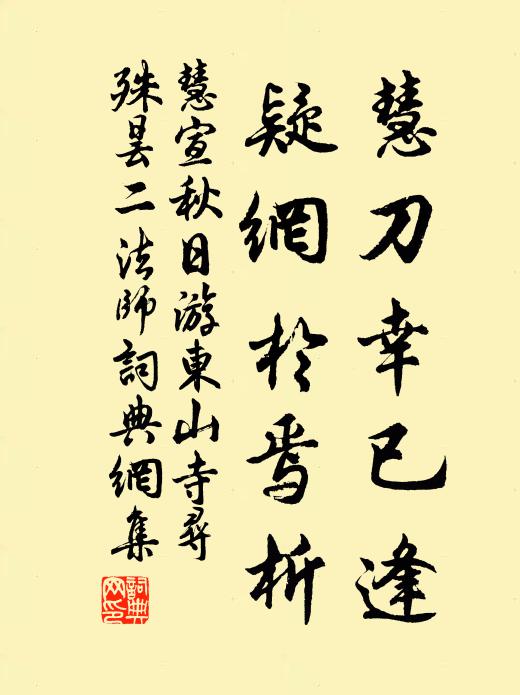 慧刀幸已逢
疑網於焉析
慧宣秋日游東山寺尋
殊曇二法師詞典網集
詞典
网印